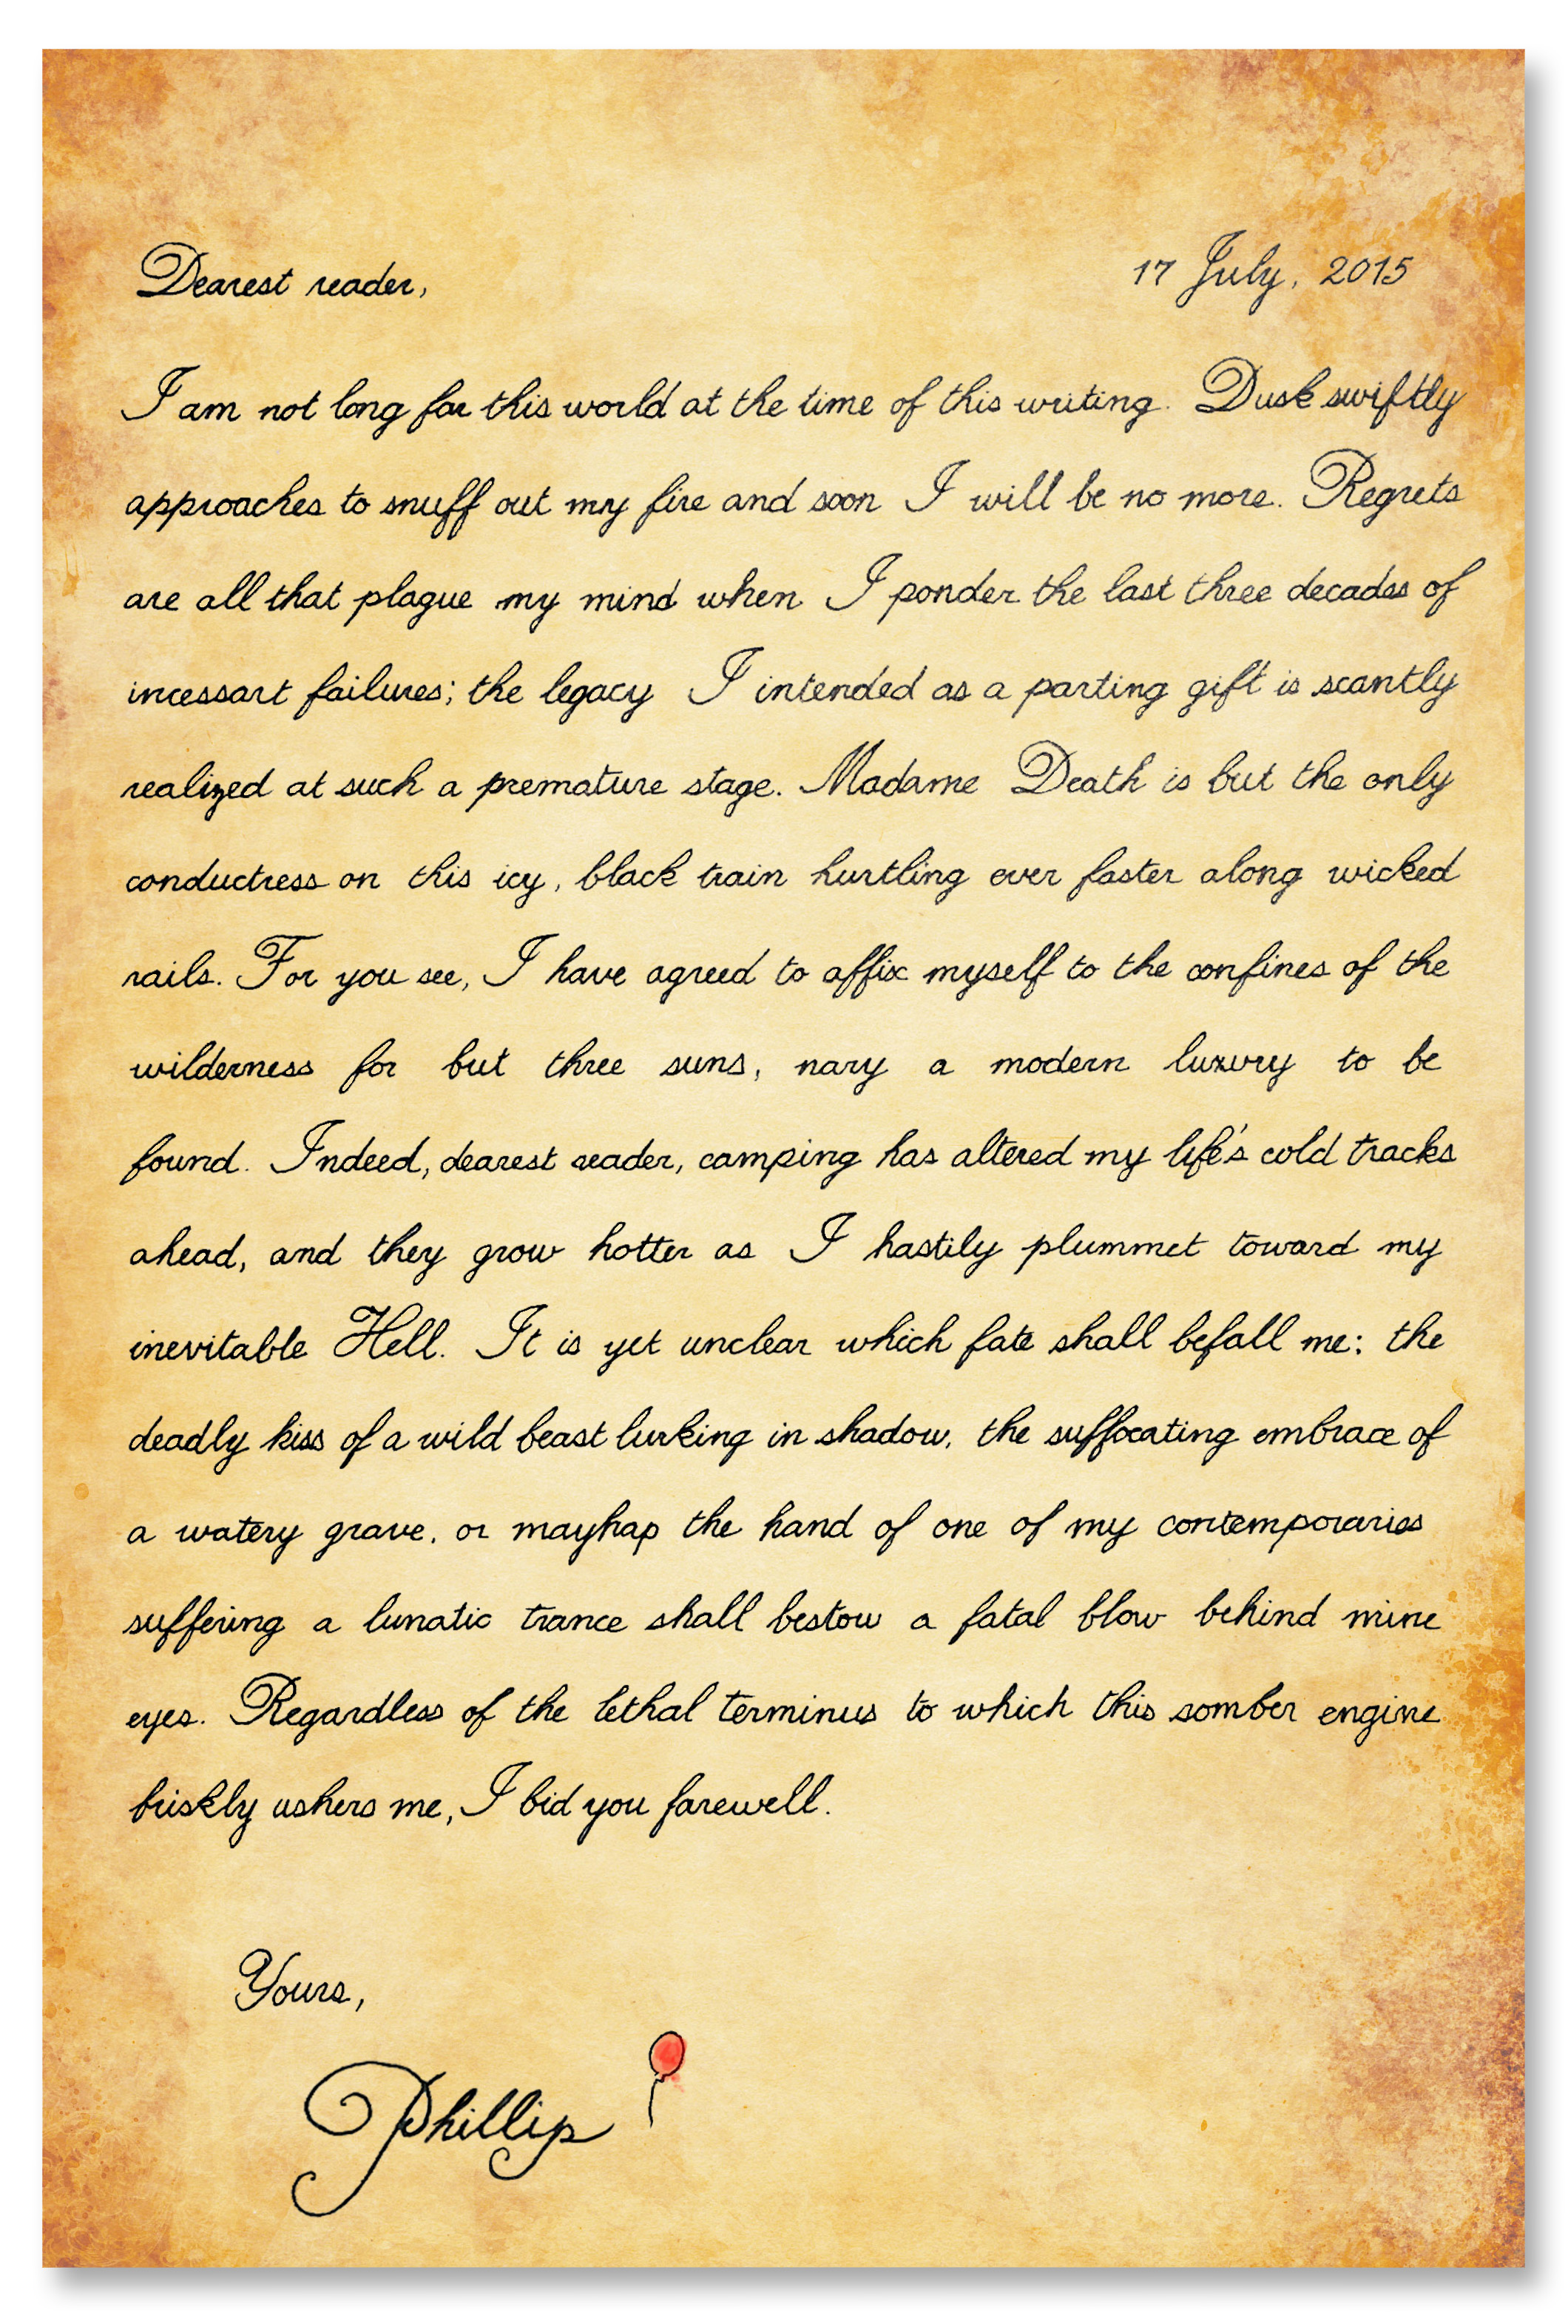 Dearest reader,
17 July, 2015
I am not long for this world at the time of this writing. Dusk swiftly
approaches to snuff out my fire and soon I will be no more. Regrets
are all that plague my mind when I ponder the last three decades of
incessant failures; the legacy I intended as a parting gift is scantly
realized at such a premature stage. Madame Death is but the only
conductress on this icy, black train hurtling ever faster along wicked
rails. For you see, I have agreed to affix myself to the confines of the
wilderness for but three suns, nary a modern luxury to be
found. Indeed, dearest reader, camping has altered my life's cold tracks
ahead, and they grow hotter as I hastily plummet toward my
inevitable Hell. It is yet unclear which fate shall befall me: the
deadly kiss of a wild beast lurking in shadow, the suffocating embrace of
a watery grave, or mayhap the hand of one of my contemporaries
suffering a lunatic trance shall bestow a fatal blow behind mine
eyes. Regardless of the lethal terminus to which this somber engine
briskly ushers me, I bid you farewell.
Yours,
Phillip